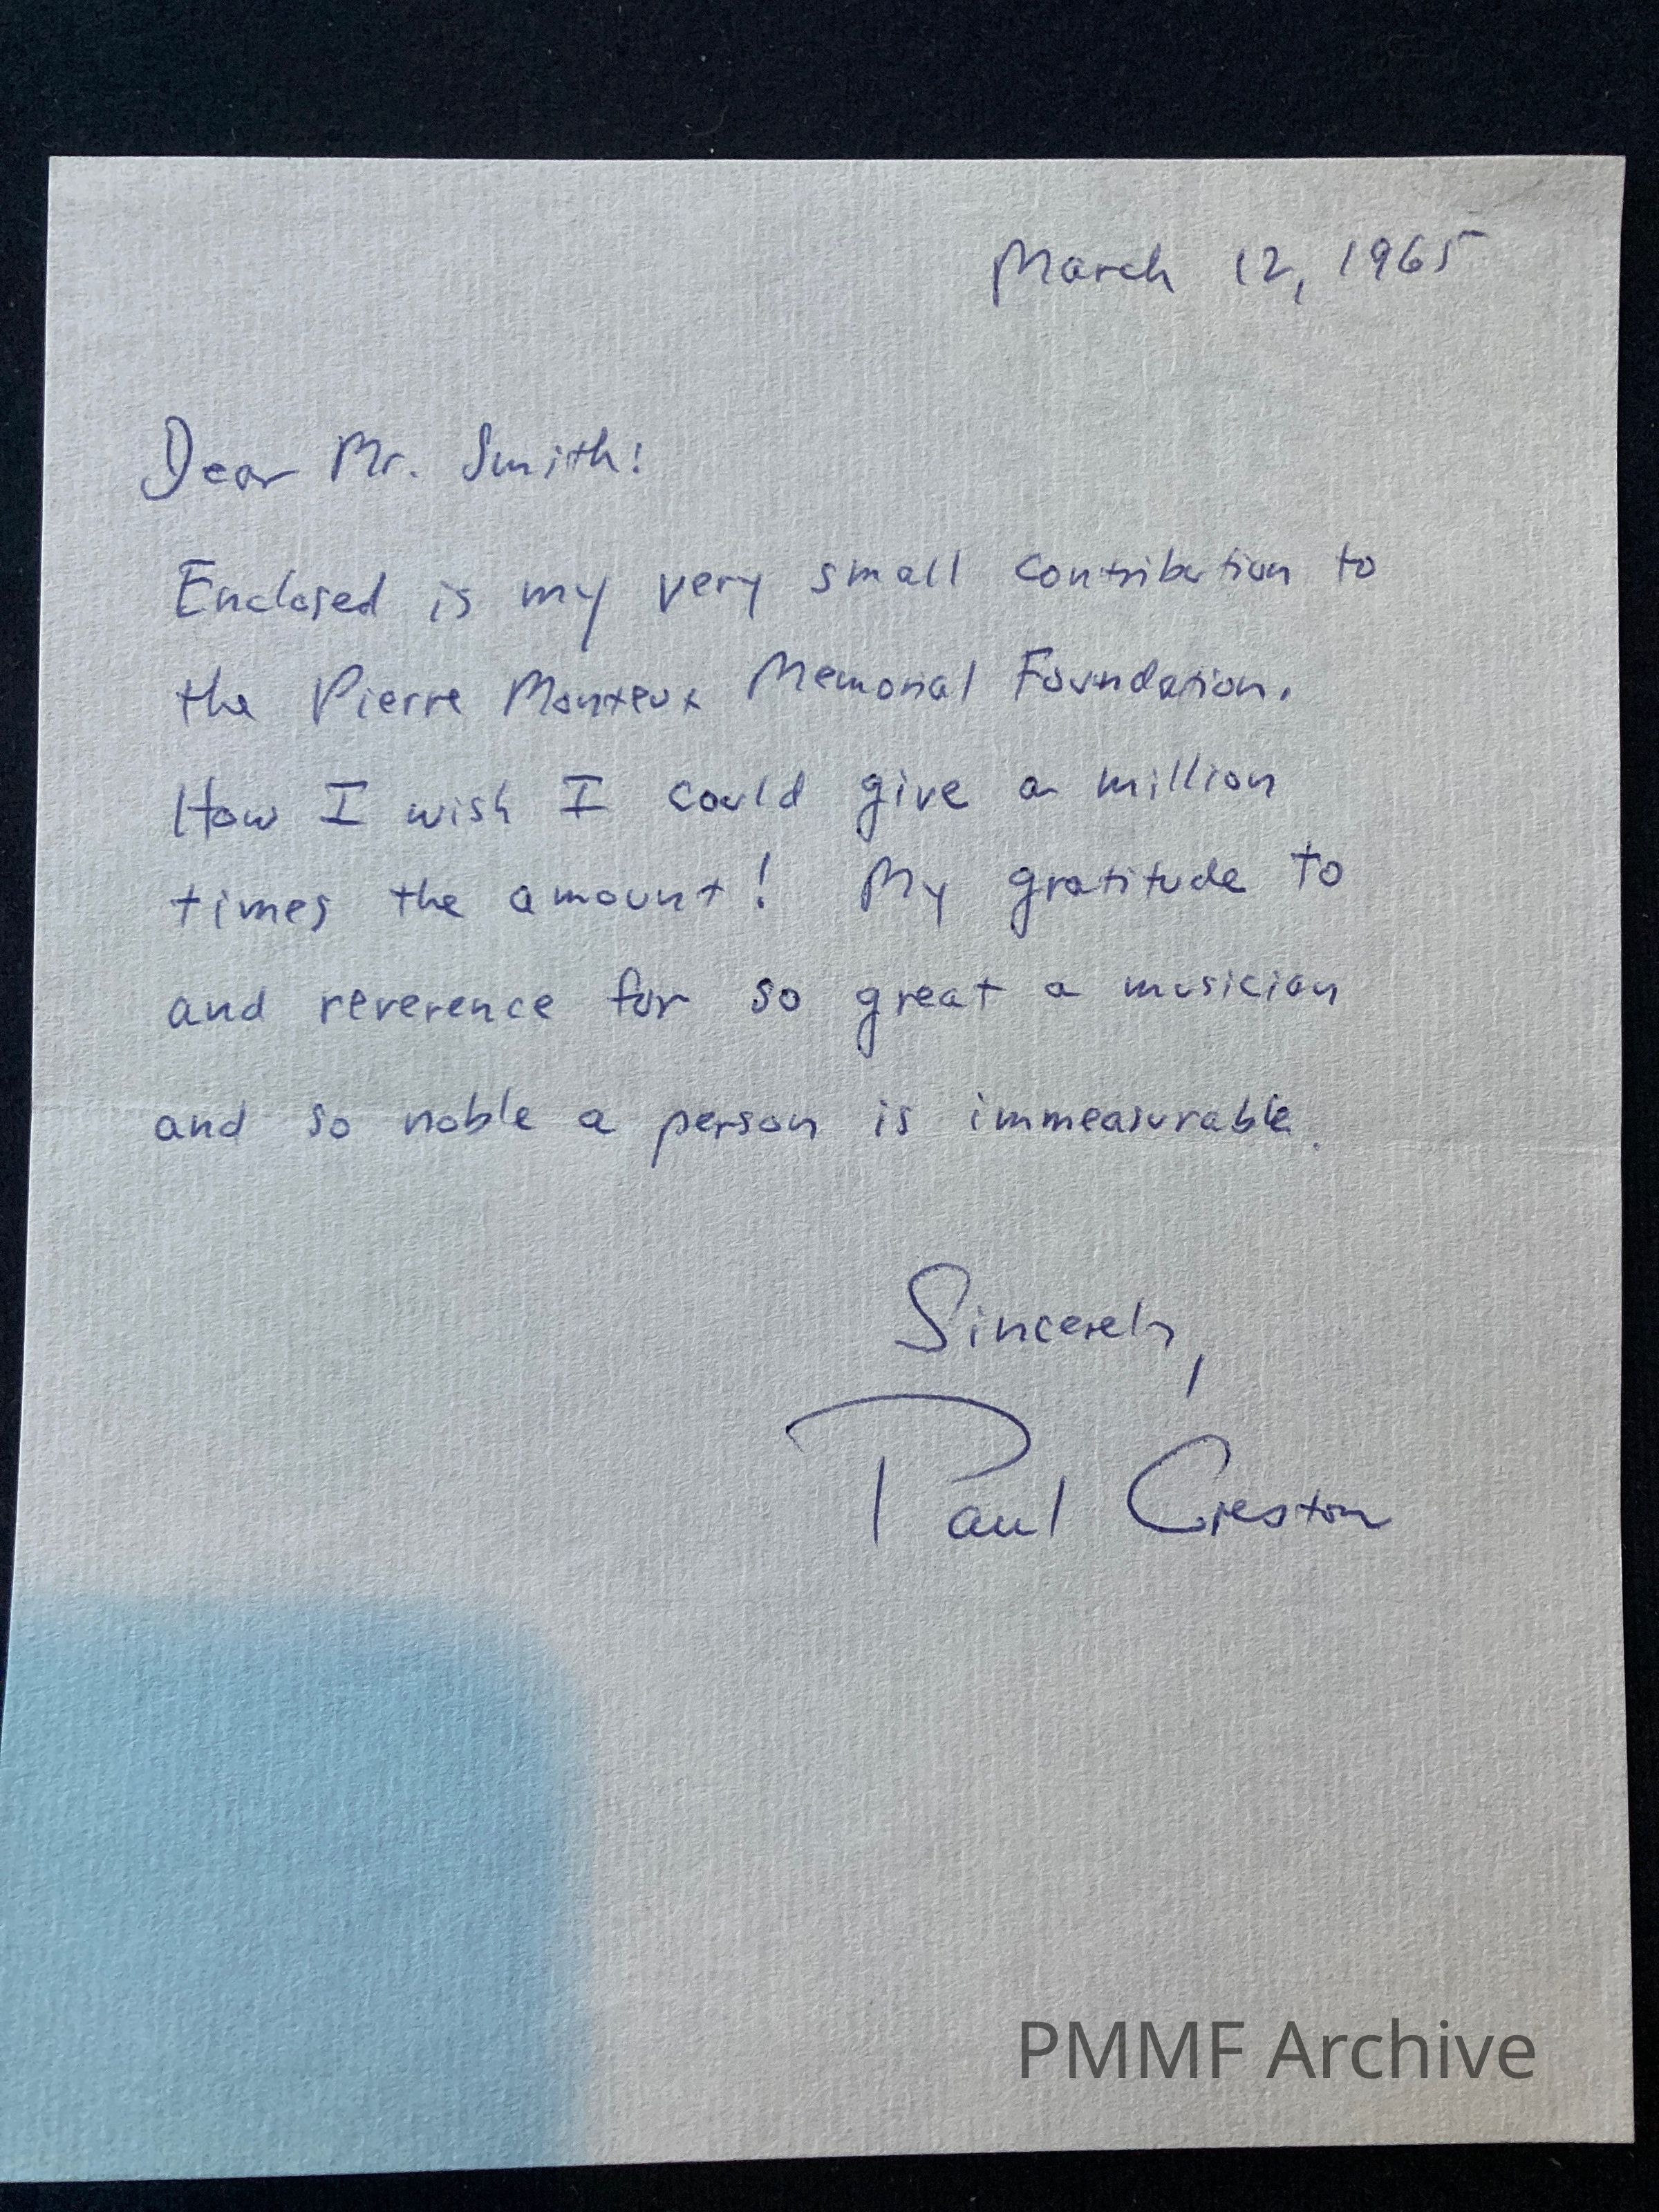 March 12, 1965
Dear Mr. Smith:
Enclosed is my very small contribution to
the Pierre Monteux Memorial Foundation.
How I wish I could give a million
times the amount! My gratitude to
and reverence for so great a musician
and so noble a person is immeasurable.
Sincerely,
Paul Creston
PMMF Archive